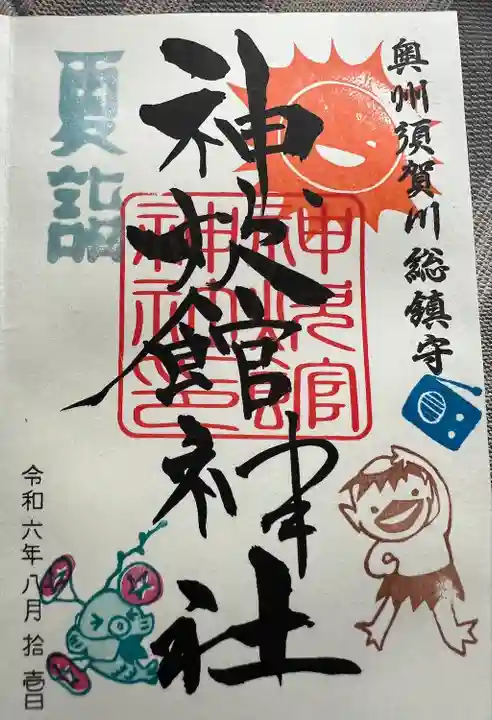 奥州須賀川総鎮守
神炊館神社
神炊館
神社印
夏詣
令和六年八月拾壱日